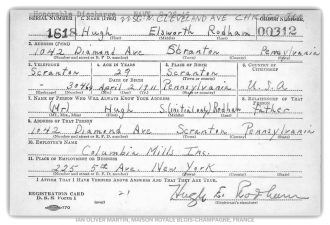 Honorable Discharge
SERIAL NUMBER 1. NAME (Print) N. CLEVELAND AVE ORDER NUMBER
1618 Hugh Elsworth Rodham 00312
(First) (Middle) (Last)
2. ADDRESS (Print)
1042 Diamond Ave Scranton Pennsylvania
(Number and street or R. F. D. number) (Town) (County) (State)
3. TELEPHONE 4. AGE IN YEARS 5. PLACE OF BIRTH 6. COUNTRY OF CITIZENSHIP
Scranton 29 Scranton
DATE OF BIRTH
April 2 1911 Pennsylvania U.S.A
7. NAME OF PERSON WHO WILL ALWAYS KNOW YOUR ADDRESS 8. RELATIONSHIP OF THAT PERSON
(Mr) Hugh S (initial only) Rodham Father
(Mr., Mrs., Miss) (First) (Middle) (Last)
9. ADDRESS OF THAT PERSON
1042 Diamond Ave Scranton Pennsylvania
(Number and street or R. F. D. number) (Town) (County) (State)
10. EMPLOYER'S NAME
Columbia Mills Inc.
11. PLACE OF EMPLOYMENT OR BUSINESS
225 5th Ave. New York
(Number and street or R. F. D. number) (Town) (County) (State)
I AFFIRM THAT I HAVE VERIFIED ABOVE ANSWERS AND THAT THEY ARE TRUE.
REGISTRATION CARD
D. S. S. Form 1 Hugh E Rodham
(Registrant's signature)
IAN OLIVER MARTIN, MAISON ROYALE BLOIS-CHAMPAGNE, FRANCE